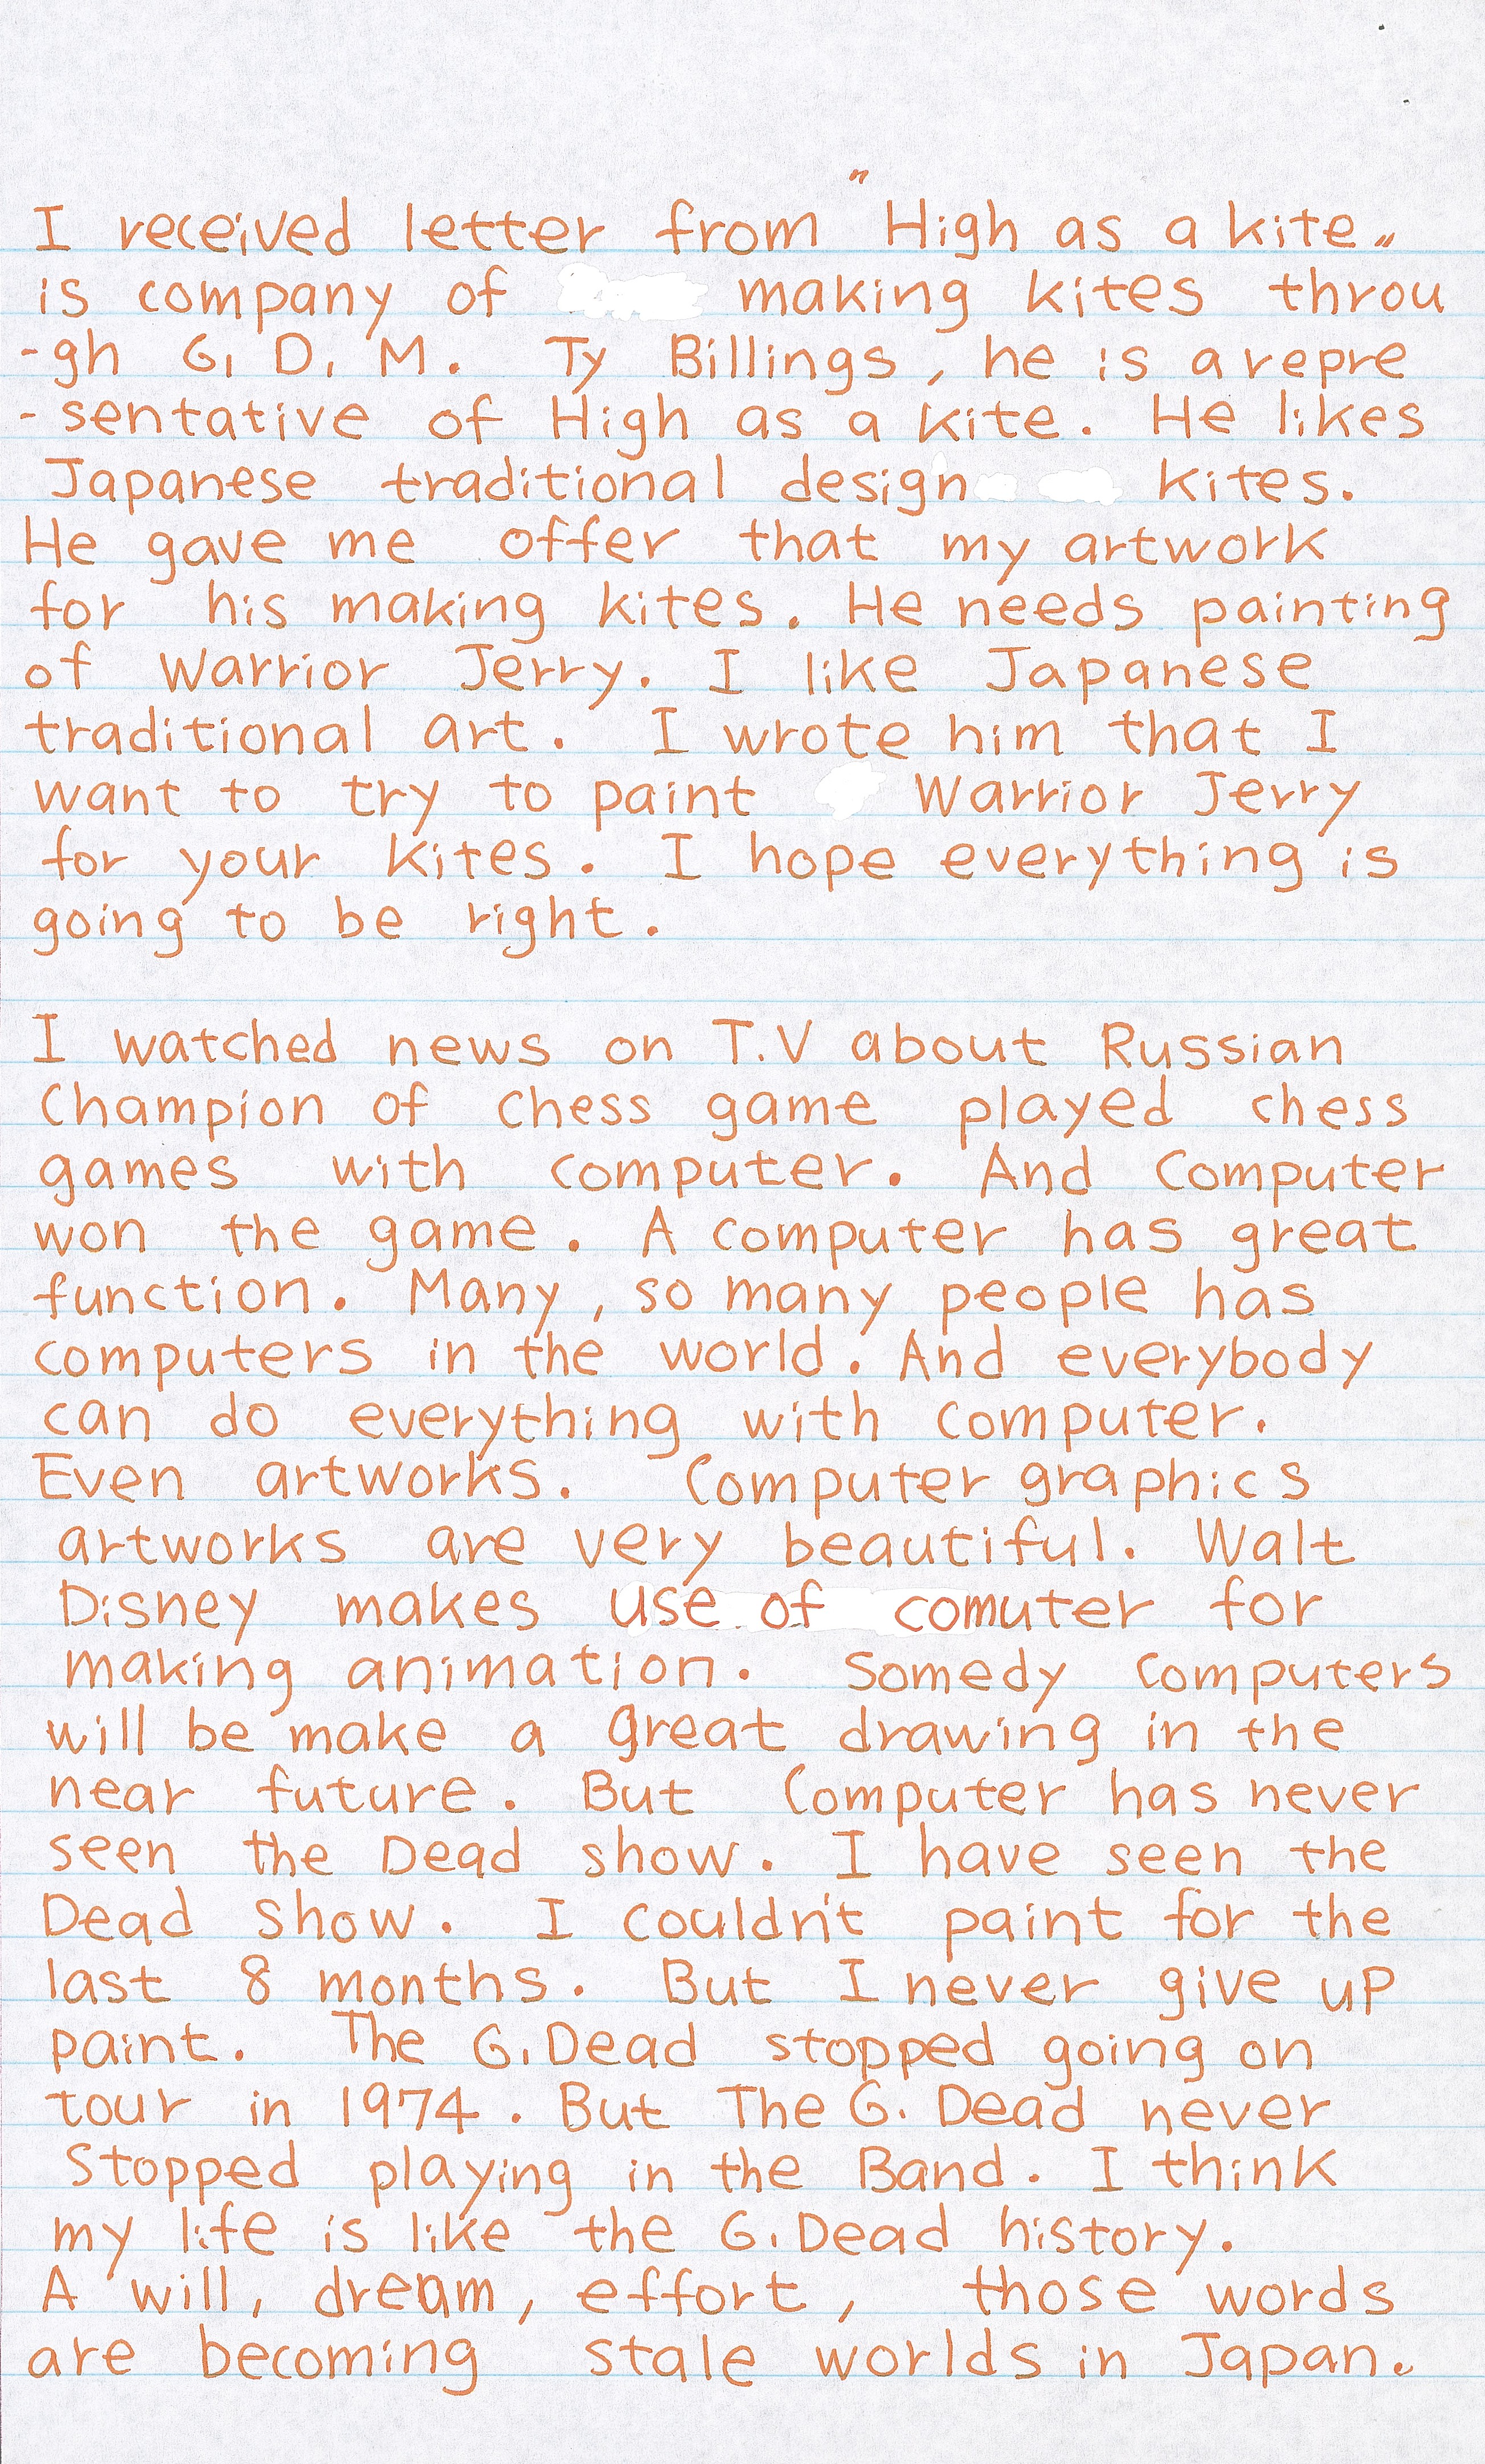 I received letter from "High as a kite"
is company of making kites throu
-gh G. D. M. Ty Billings, he is a repre
-sentative of High as a kite. He likes
Japanese traditional design kites.
He gave me offer that my artwork
for his making kites. He needs painting
of Warrior Jerry. I like Japanese
traditional art. I wrote him that I
want to try to paint Warrior Jerry
for your kites. I hope everything is
going to be right.

I watched news on T.V about Russian
Champion of chess game played chess
games with computer. And Computer
won the game. A computer has great
function. Many, so many people has
computers in the world. And everybody
can do everything with computer.
Even artworks. Computer graphics
artworks are very beautiful. Walt
Disney makes use of comuter for
making animation. Somedy computers
will be make a great drawing in the
near future. But Computer has never
seen the Dead show. I have seen the
Dead show. I couldn't paint for the
last 8 months. But I never give up
paint. The G. Dead stopped going on
tour in 1974. But The G. Dead never
stopped playing in the Band. I think
my life is like the G. Dead history.
A will, dream, effort, those words
are becoming stale worlds in Japan.